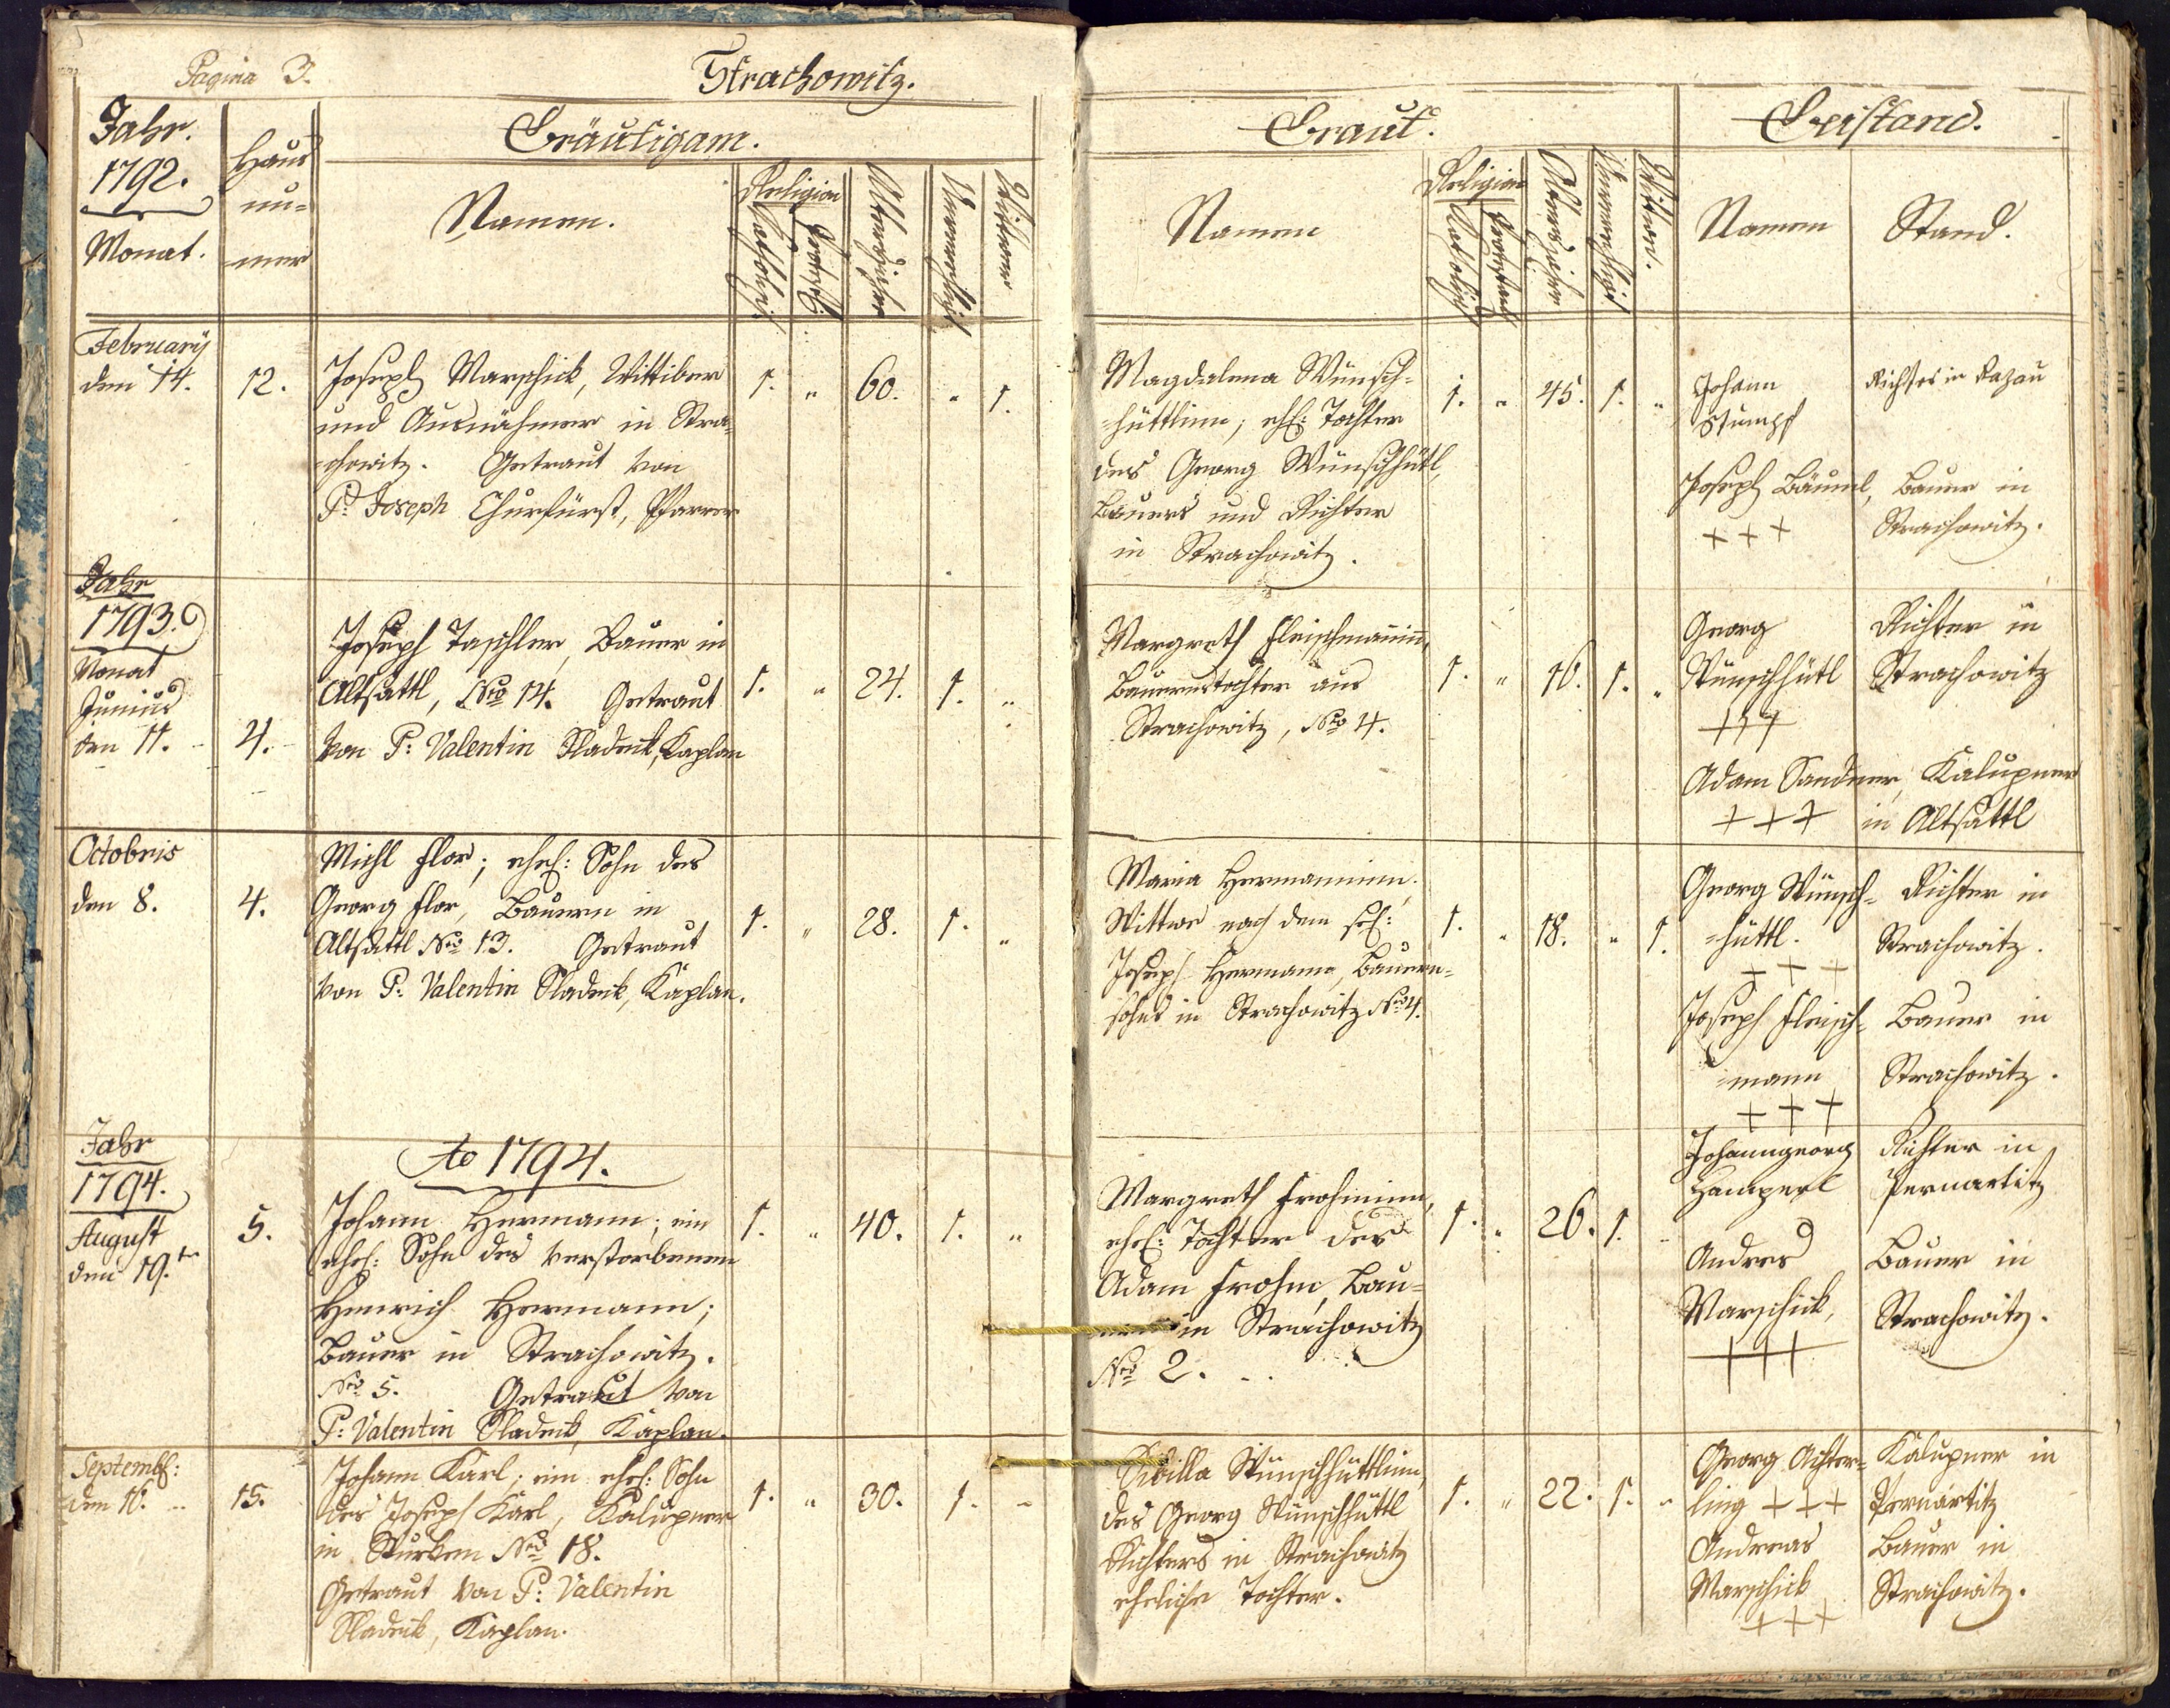 Pagina 3.
Strachowitz.
Jahr.
1792.
Monat.
Haus
nu=
mer
Bräutigam.
Namen.
Religion
Katholisch
Protest:
Altersjahre
Unverehligt
Wittwer
Braut.
Namen
Religion
Katolisch
Protestant
Altersjahre
Unverehligt
Wittwe.
Beistand.
Namen
Stand.
February
den 14.
12.
Joseph Marschick, Wittiber
und Ausnähmer in Stra=
=chowitz. Getraut von
P. Joseph Churfürst, Pfarrer
1. " 60. " 1.
Magdalena Wünsch=
=hüttlinn; ehl: Tochter
des Georg Wünschhütl,
Bauers und Richter
in Strachowitz.
1. " 45. 1. "
Johann
Stumpf
Richter in Razau
Joseph Bäuml,
+++
Bauer in
Strachowitz.
Jahr
1793.
Monat
Junius
den 11.
4.
Joseph Taschler, Bauer in
Altsattl, Nro 14. Getraut
von P: Valentin Sladeck, Kaplan
1. " 24. 1. "
Margreth Fleischmaninn,
Bauernstochter aus
Strachowitz, Nro 4.
1. " 16. 1. "
Georg
Wünschhütl
+++
Richter in
Strachowitz
Adam Sandner, Kalupner
+++ in Altsattl
Octobris
den 8.
4.
Michl Flor; ehel: Sohn des
Georg Flor, Bauern in
Altsattl Nro 13. Getraut
von P: Valentin Sladeck, Kaplan.
1. " 28. 1. "
Maria Hermaninn.
Wittwe nach dem sel:
Joseph Hermann, Bauern=
sohns in Strachowitz Nro 4.
1. " 18. " 1.
Georg Wünsch=
=hüttl.
+++
Richter in
Strachowitz.
Joseph Fleisch=
=mann
+++
Bauer in
Strachowitz.
Jahr
1794.
August
den 19.ten
5.
Ao 1794.
Johann Hermann; ein
ehel: Sohn des verstorbenen
Heinrich Hermann;
Bauer in Strachowitz.
Nro 5. Getraut von
P: Valentin Sladeck, Kaplan.
1. " 40. 1. "
Margreth Frohminn,
ehel: Tochter des
Adam Frohm, Bau=
in Strachowitz
Nro 2.
1. " 26. 1.
Johanngeorg
Hamperl
Richter in
Pernartitz
Andres
Marschick,
+++
Bauer in
Strachowitz.
Septemb:
den 16.
15.
Johann Karl; ein ehel: Sohn
des Joseph Karl, Kalupner
in Nro 18.
Getraut von P: Valentin
Sladeck, Kaplan.
1. " 30. 1. "
Sibilla Wünschhüttlinn,
des Georg Wünschhüttl
Richters in Strachowitz
eheliche Tochter.
1. " 22. 1. "
Georg Achter=
ling +++
Kalupner in
Pernartitz
Andreas
Marschick
+++
Bauer in
Strachowitz.